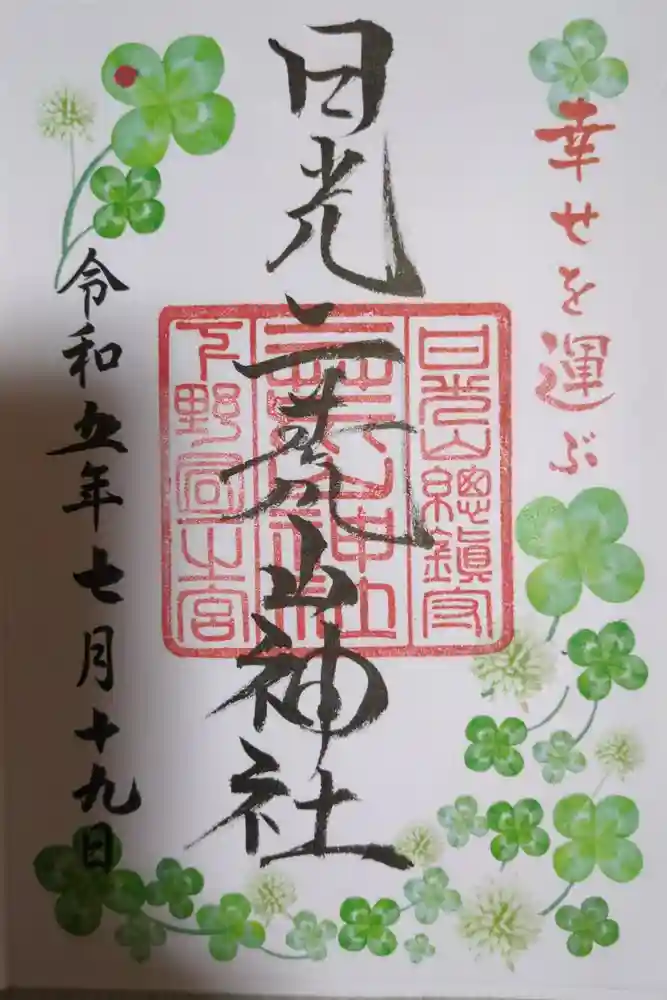 幸せを運ぶ
日光二荒山神社
日光山總鎮守
二荒山神社
下野国一之宮
令和五年七月十九日